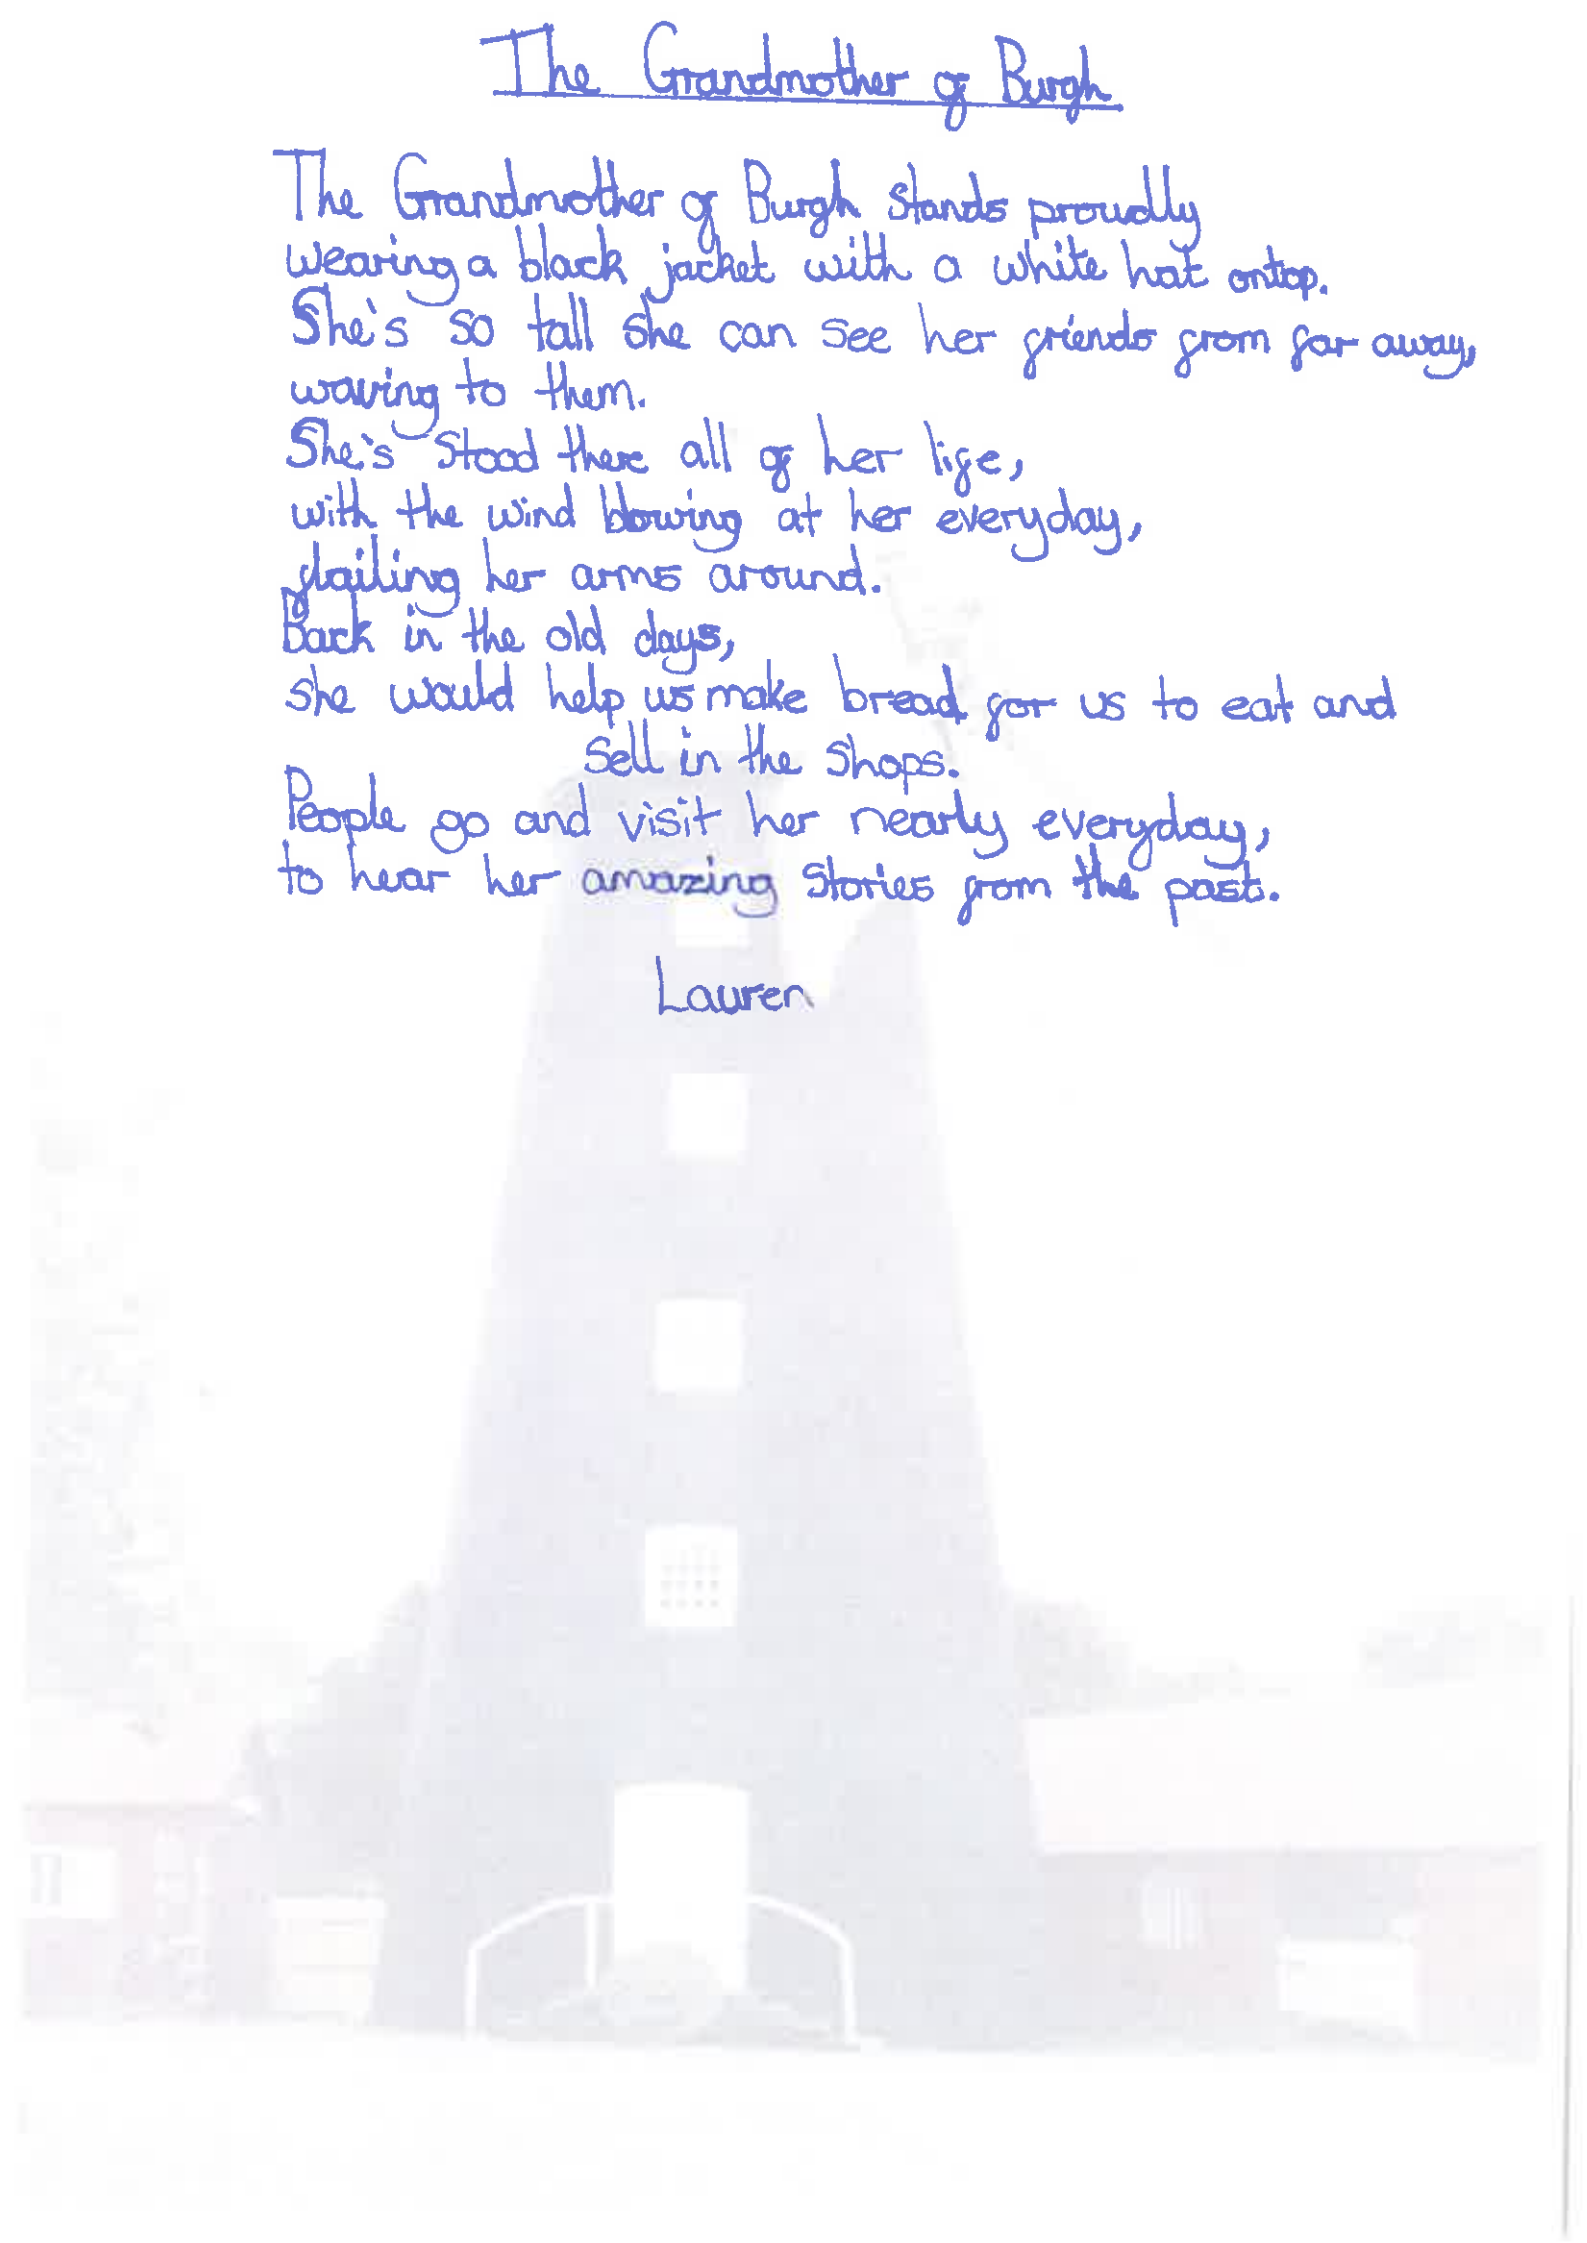 The Grandmother of Burgh
The Grandmother of Burgh stands proudly
wearing a black jacket with a white hat ontop.
She's so tall she can see her friends from far away,
waving to them.
She's stood there all of her life,
with the wind blowing at her everyday,
flailing her arms around.
Back in the old days,
she would help us make bread for us to eat and
sell in the shops.
People go and visit her nearly everyday,
to hear her amazing stories from the past.
Lauren